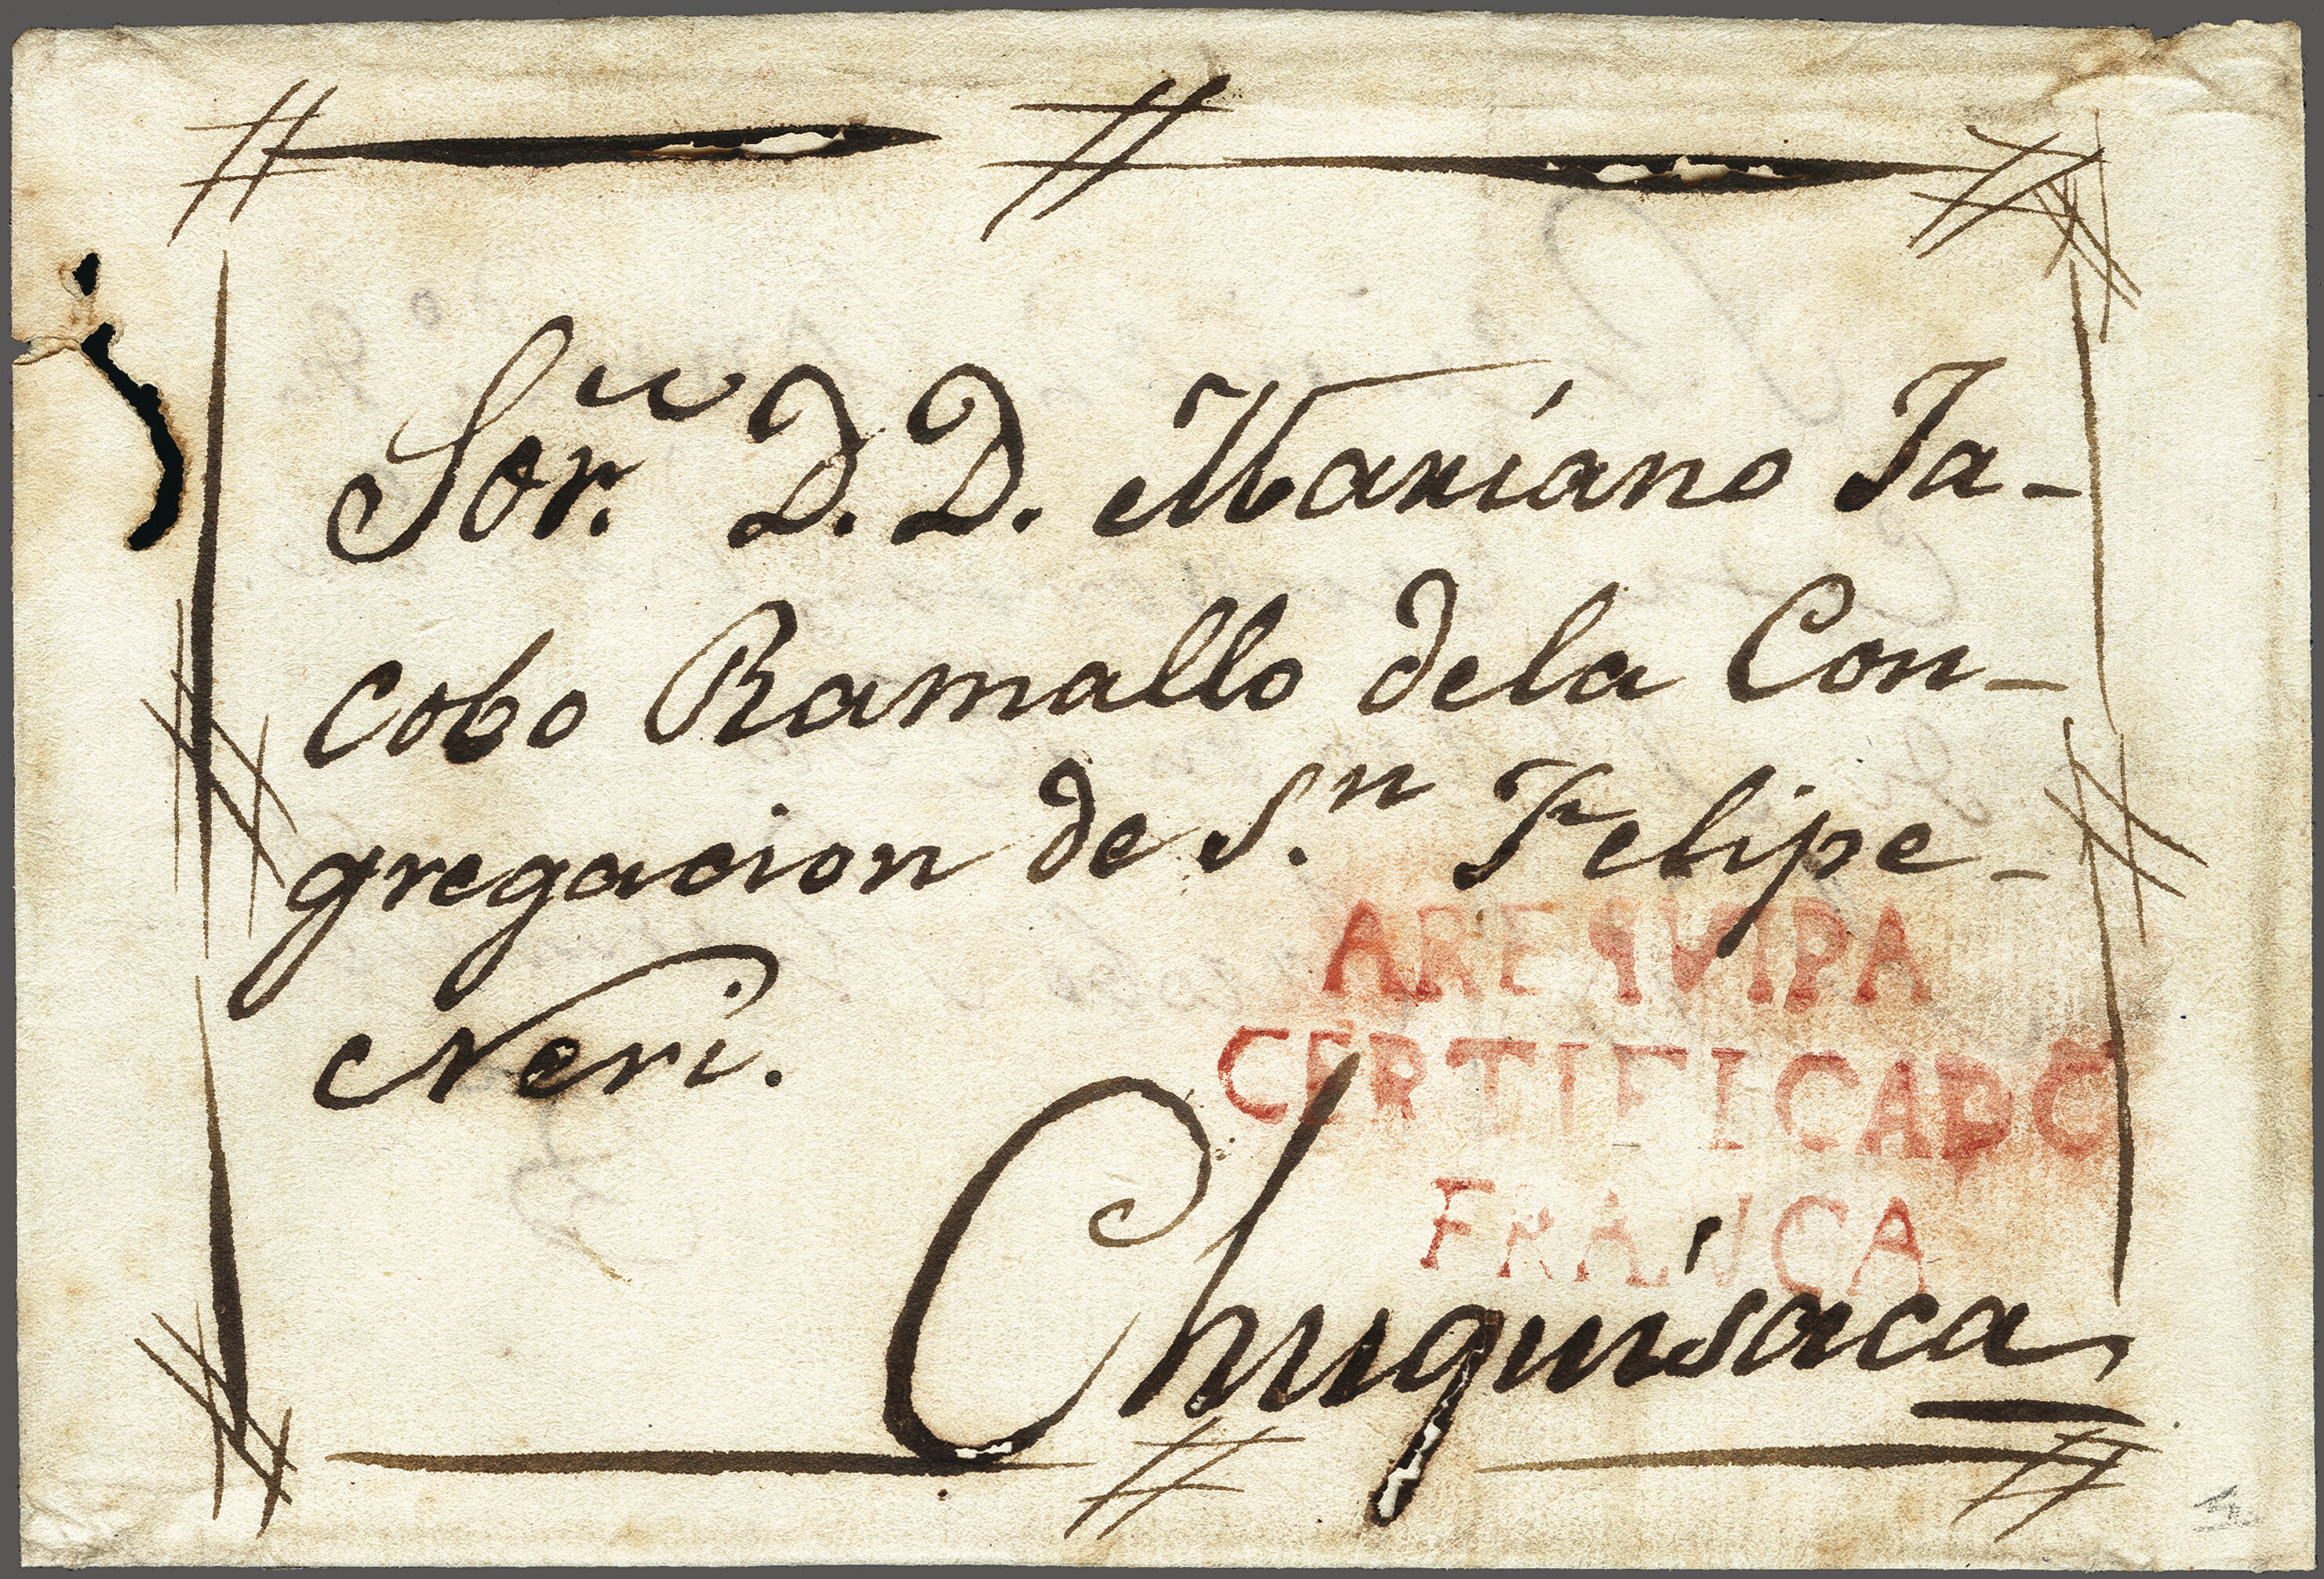 Sor. D. D. Mariano Ja-
cobo Ramallo dela Con-
gregacion de S.n Felipe-
Neri.
AREQUIPA
CERTIFICADO
FRANCA
Chuquisaca